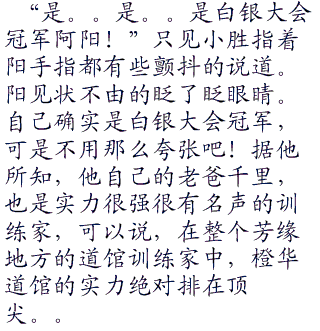 “是。。是。。是白银大会
冠军阿阳！”只见小胜指着
阳手指都有些颤抖的说道。
阳见状不由的眨了眨眼睛。
自己确实是白银大会冠军，
可是不用那么夸张吧！据他
所知，他自己的老爸千里，
也是实力很强很有名声的训
练家，可以说，在整个芳缘
地方的道馆训练家中，橙华
道馆的实力绝对排在顶
尖。。